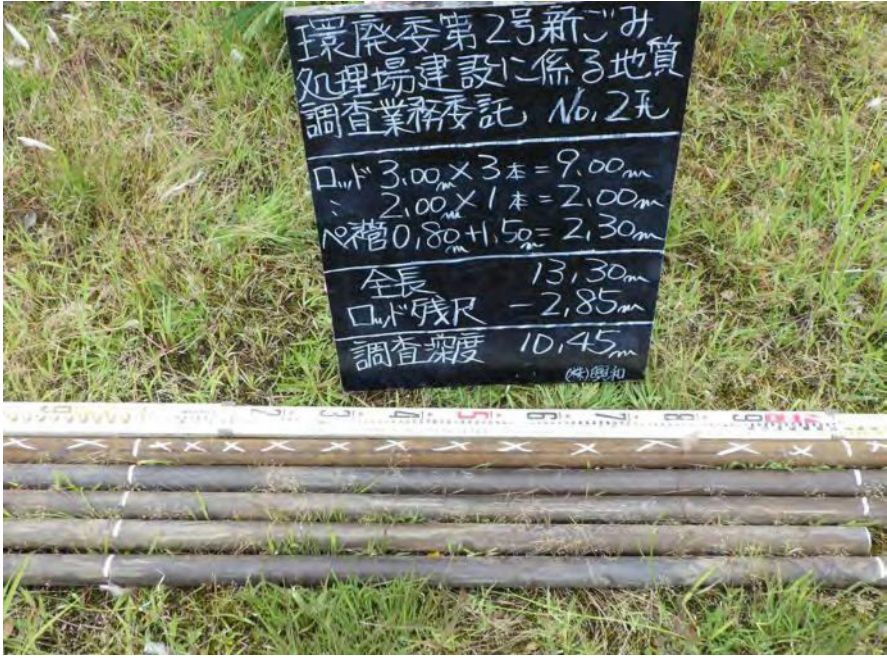 環廃委第2号新ごみ
処理場建設に係る地質
調査業務委託 No,2孔
ロッド 3,00m×3本=9,00m
〃 2,00m×1本=2,00m
ペネ管0,80m+1,50m=2,30m
全長 13,30m
ロッド残尺 -2,85m
調査深度 10,45m
(株)興和
2 3 4 5 6 7 8 9